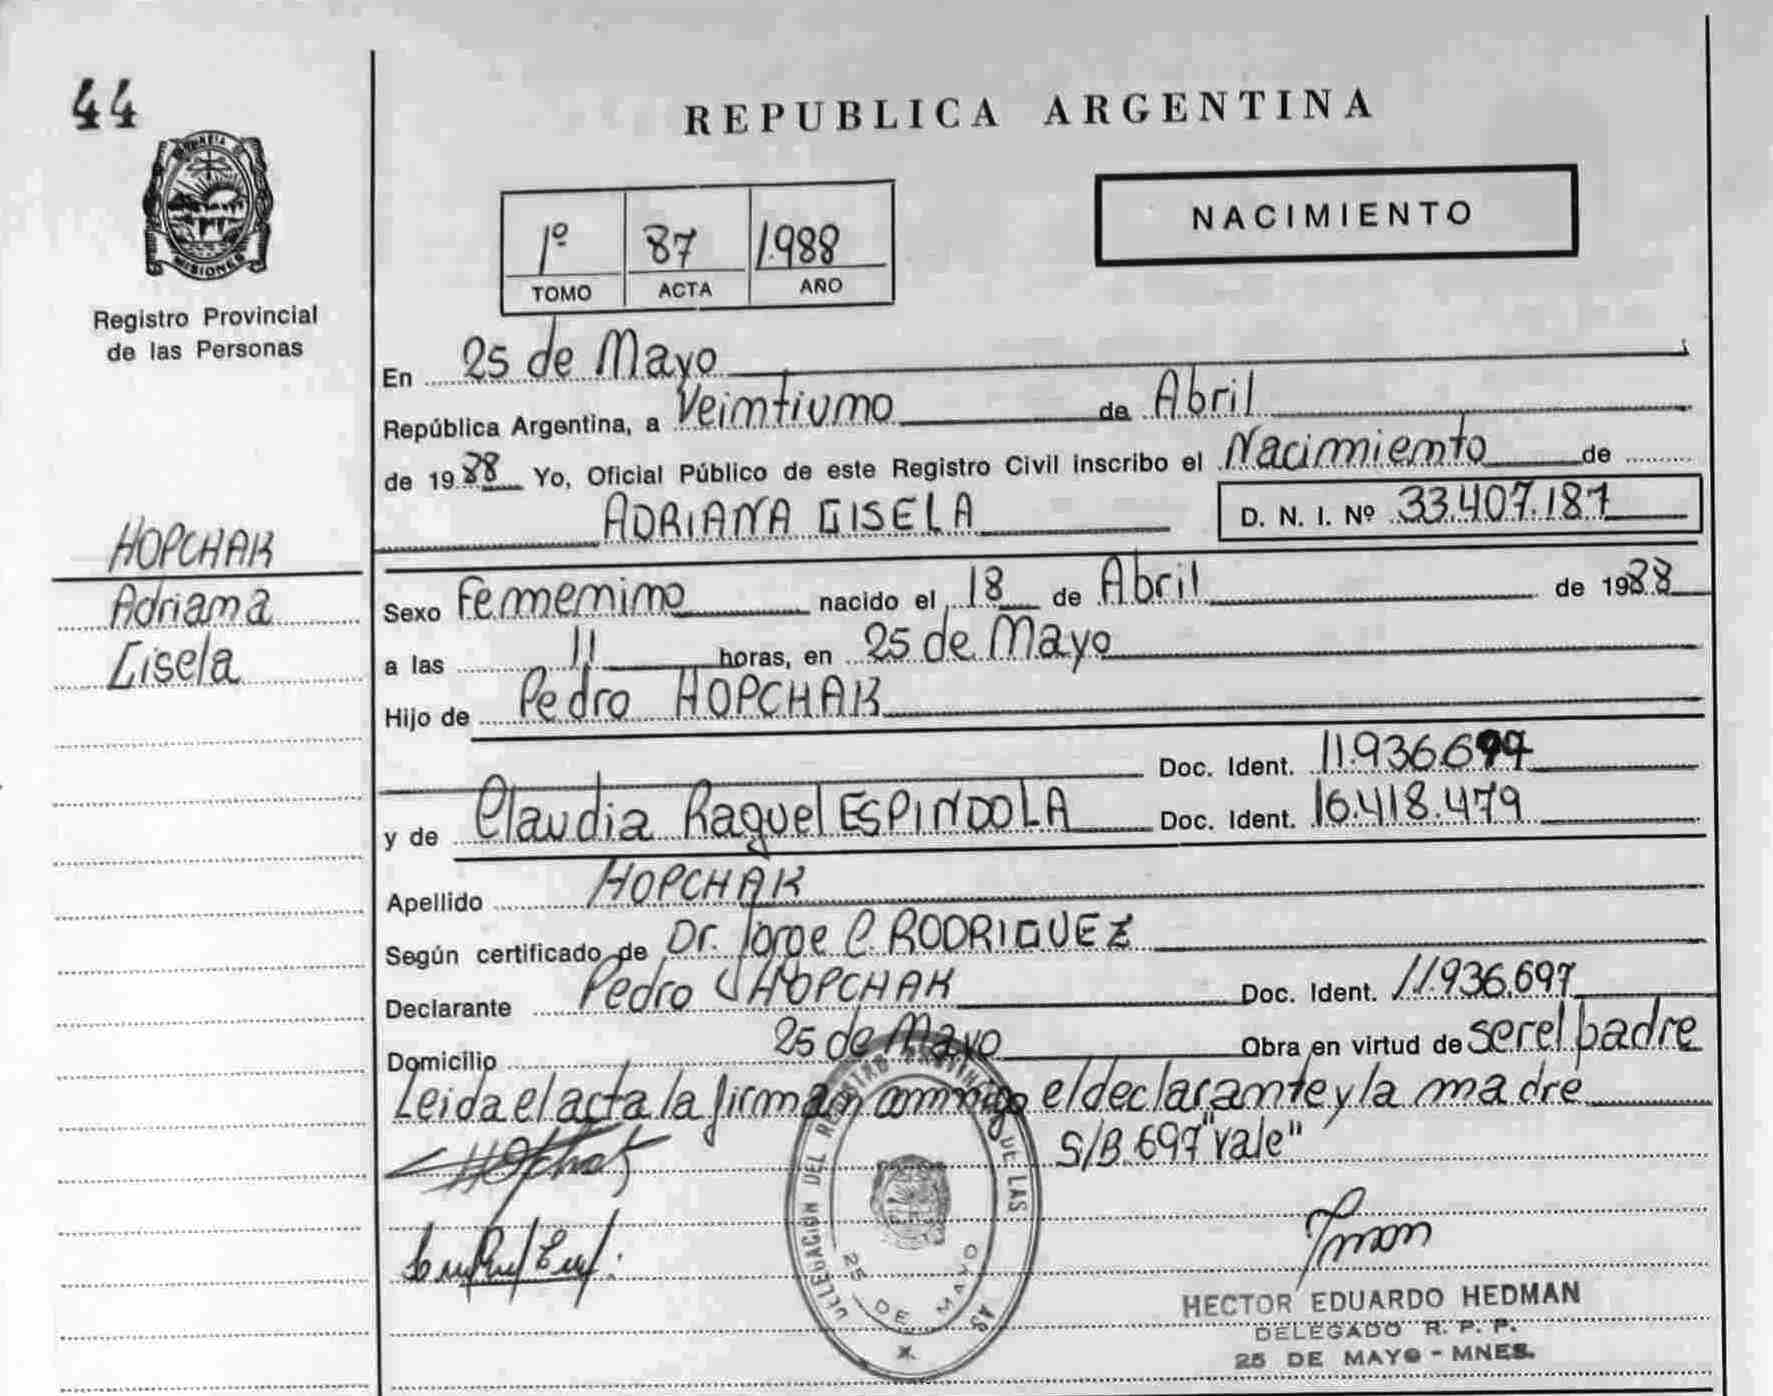 44
MISIONES
Registro Provincial
de las Personas
HOPCHAK
Adriana
Gisela
REPUBLICA ARGENTINA
NACIMIENTO
1º 87 1.988
TOMO ACTA AÑO
En 25 de Mayo
República Argentina, a Veintiuno de Abril
de 1988 Yo, Oficial Público de este Registro Civil inscribo el Nacimiento de
ADRIANA GISELA D. N. I. Nº 33.407.187
Sexo Femenino nacido el 18 de Abril de 1988
a las 11 horas, en 25 de Mayo
Hijo de Pedro HOPCHAK
Doc. Ident. 11.936.697
y de Claudia Raquel ESPINDOLA Doc. Ident. 16.418.479
Apellido HOPCHAK
Según certificado de Dr. Jorge C. RODRIGUEZ
Declarante Pedro HOPCHAK Doc. Ident. 11.936.697
Domicilio 25 de Mayo Obra en virtud de ser el padre
Leida el acta la firman conmigo el declarante y la madre
S/B.697 "vale"
DELEGACIÓN DEL REGISTRO DE LAS
25 DE MAYO
HECTOR EDUARDO HEDMAN
DELEGADO R. P. P.
25 DE MAYO - MNES.